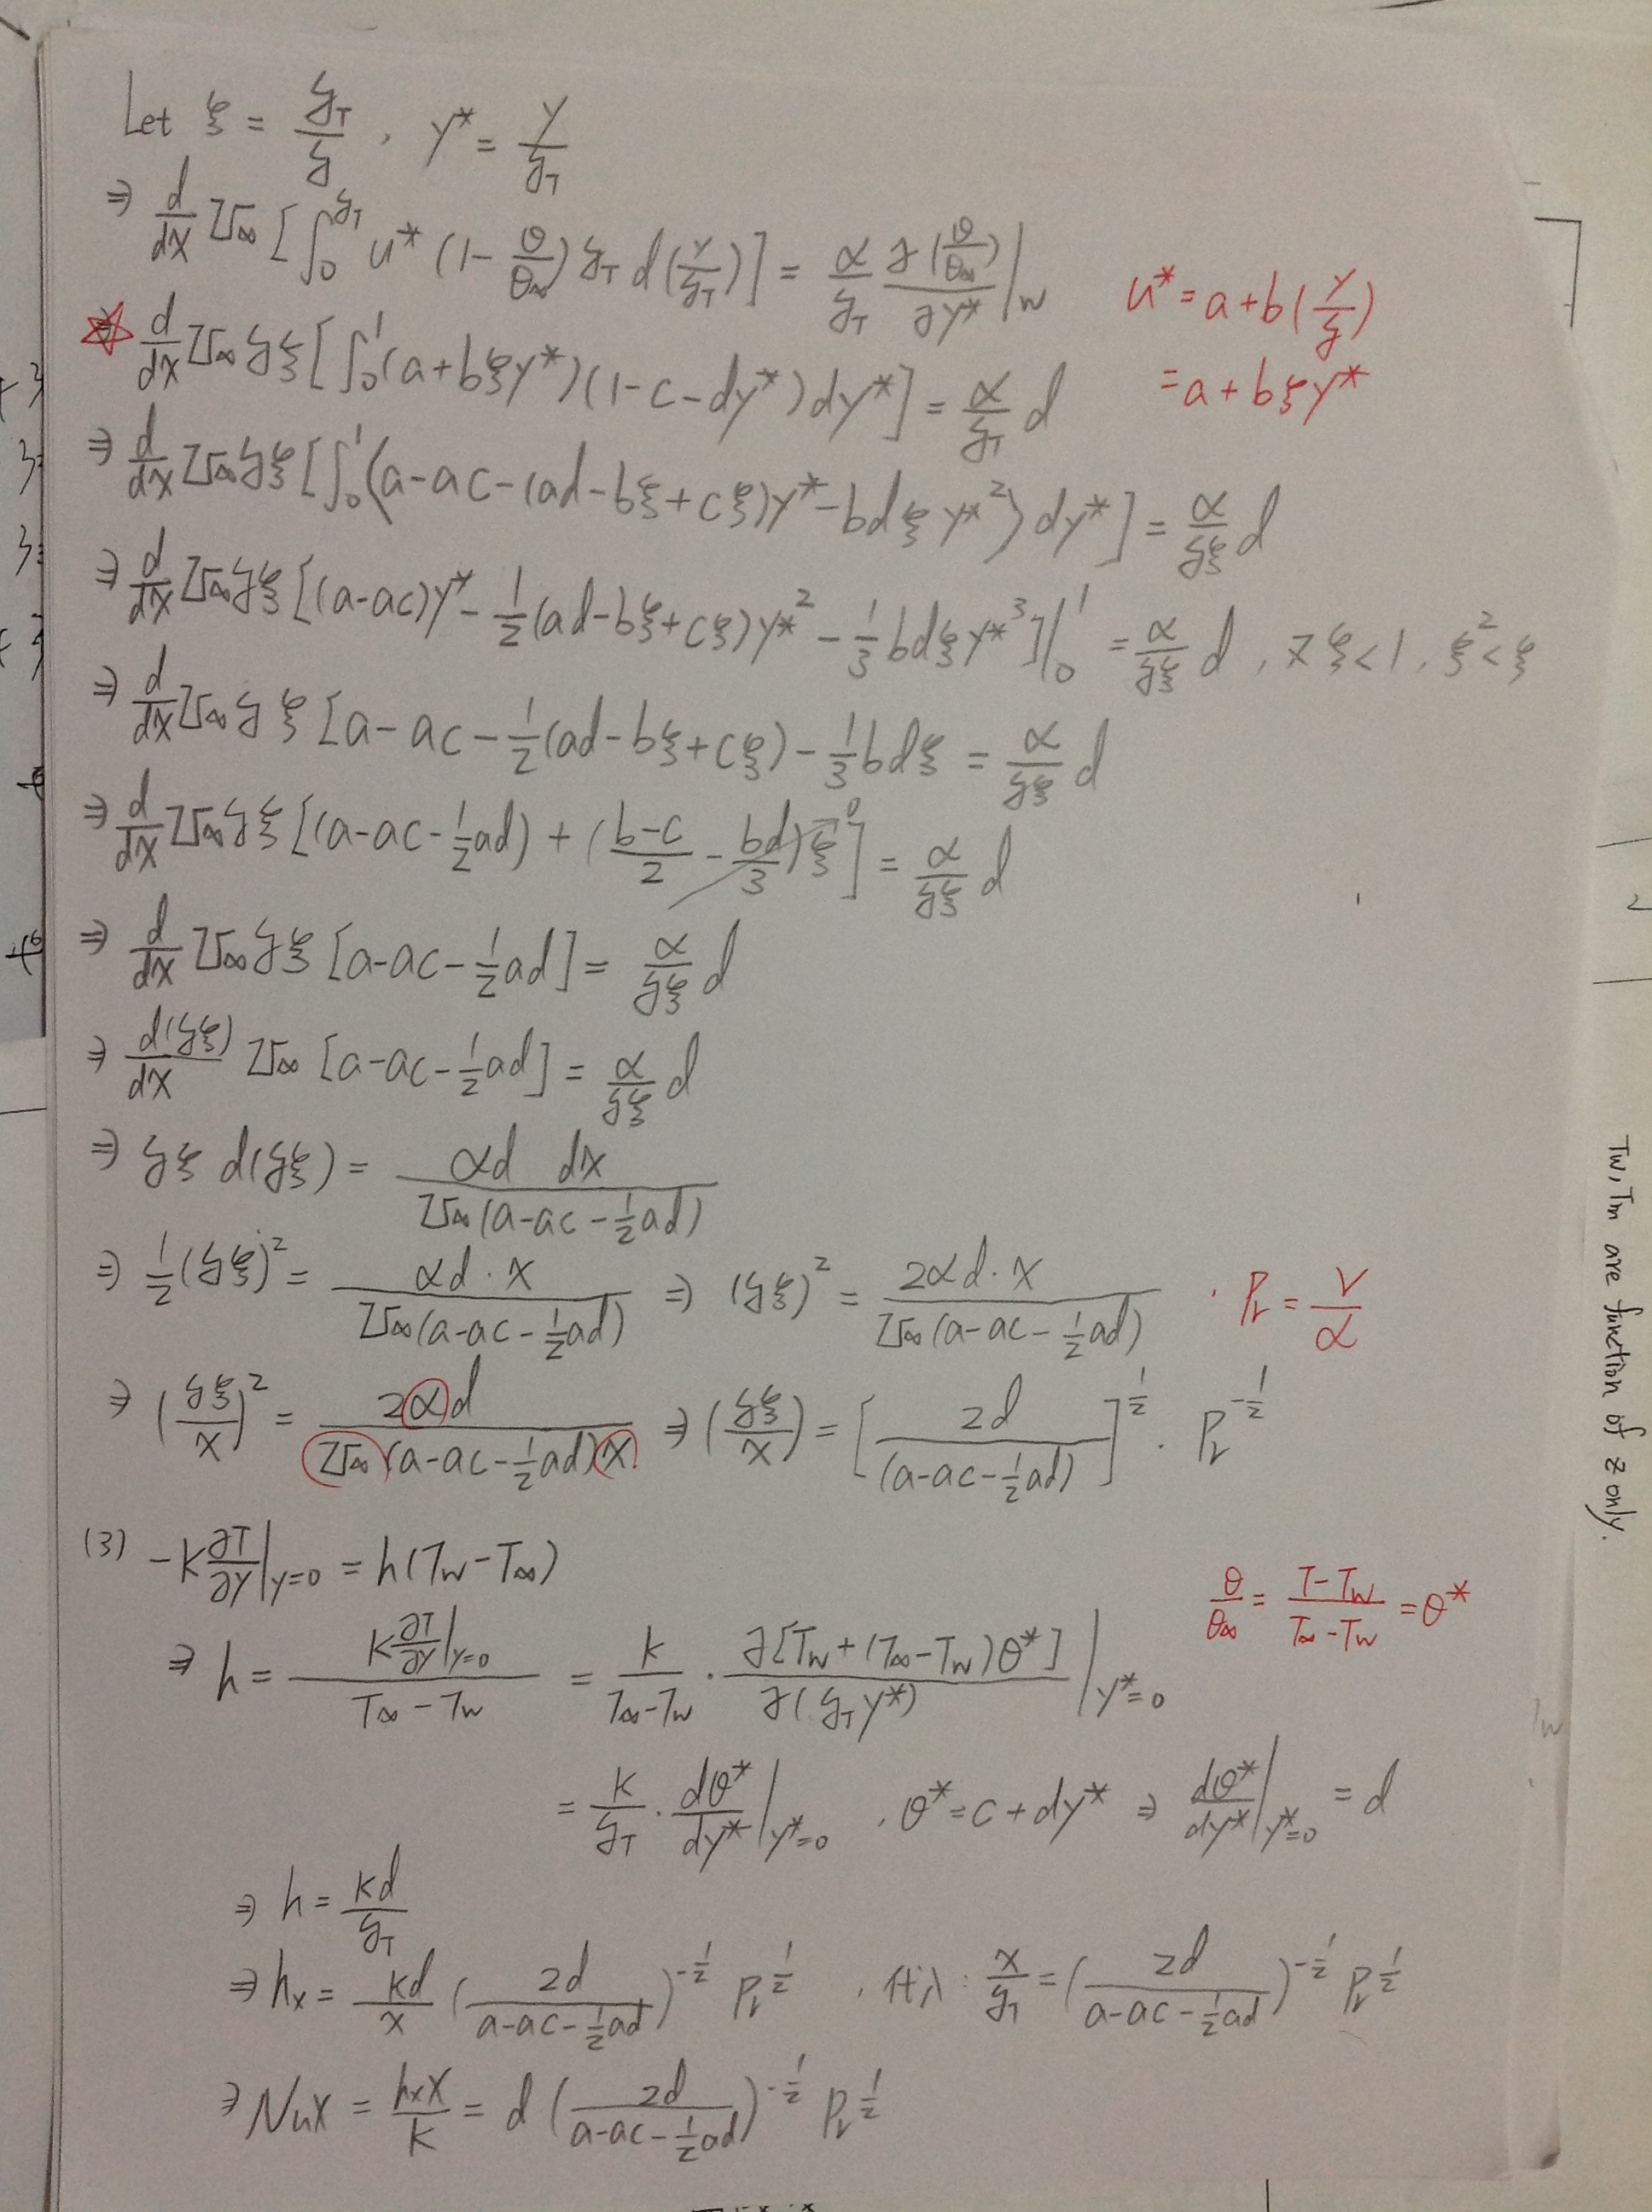 Let ξ = δ_T/δ , y* = y/δ_T
⇒ d/dx U∞ [∫₀^{δ_T} u* (1 - θ/θ∞) δ_T d(y/δ_T)] = α/δ_T ∂(θ/θ∞)/∂y* |_w
u* = a + b(y/δ)
= a + bξy*
☆ ⇒ d/dx U∞ δξ [∫₀¹ (a + bξy*)(1 - c - dy*) dy*] = α/δ_T d
⇒ d/dx U∞ δξ [∫₀¹ (a - ac - (ad - bξ + cξ)y* - bdξy*²) dy*] = α/δξ d
⇒ d/dx U∞ δξ [(a - ac)y* - 1/2(ad - bξ + cξ)y*² - 1/3 bdξy*³]|₀¹ = α/δξ d , ξ < 1 , ξ² < ξ
⇒ d/dx U∞ δξ [a - ac - 1/2(ad - bξ + cξ) - 1/3 bdξ = α/δξ d
⇒ d/dx U∞ δξ [(a - ac - 1/2 ad) + (b-c/2 - bd/3)ξ → 0] = α/δξ d
⇒ d/dx U∞ δξ [a - ac - 1/2 ad] = α/δξ d
⇒ d(δξ)/dx U∞ [a - ac - 1/2 ad] = α/δξ d
⇒ δξ d(δξ) = αd dx / U∞(a - ac - 1/2 ad)
⇒ 1/2(δξ)² = αd·x / U∞(a - ac - 1/2 ad) ⇒ (δξ)² = 2αd·x / U∞(a - ac - 1/2 ad) , Pr = ν/α
⇒ (δξ/x)² = 2αd / U∞(a - ac - 1/2 ad)x ⇒ (δξ/x) = [2d / (a - ac - 1/2 ad)]^{1/2} · Pr^{-1/2}
(3) -k ∂T/∂y |_{y=0} = h(Tw - T∞)
θ/θ∞ = T - Tw / T∞ - Tw = θ*
⇒ h = k ∂T/∂y |_{y=0} / T∞ - Tw = k / T∞ - Tw · ∂[Tw + (T∞ - Tw)θ*] / ∂(δ_T y*) |_{y*=0}
= k/δ_T · dθ*/dy* |_{y*=0} , θ* = c + dy* ⇒ dθ*/dy* |_{y*=0} = d
⇒ h = kd/δ_T
⇒ hx = kd/x (2d / a - ac - 1/2 ad)^{-1/2} Pr^{1/2} , 代入: x/δ_T = (2d / a - ac - 1/2 ad)^{-1/2} Pr^{1/2}
⇒ Nux = hx x/k = d (2d / a - ac - 1/2 ad)^{-1/2} Pr^{1/2}
Tw, Tm are function of z only.